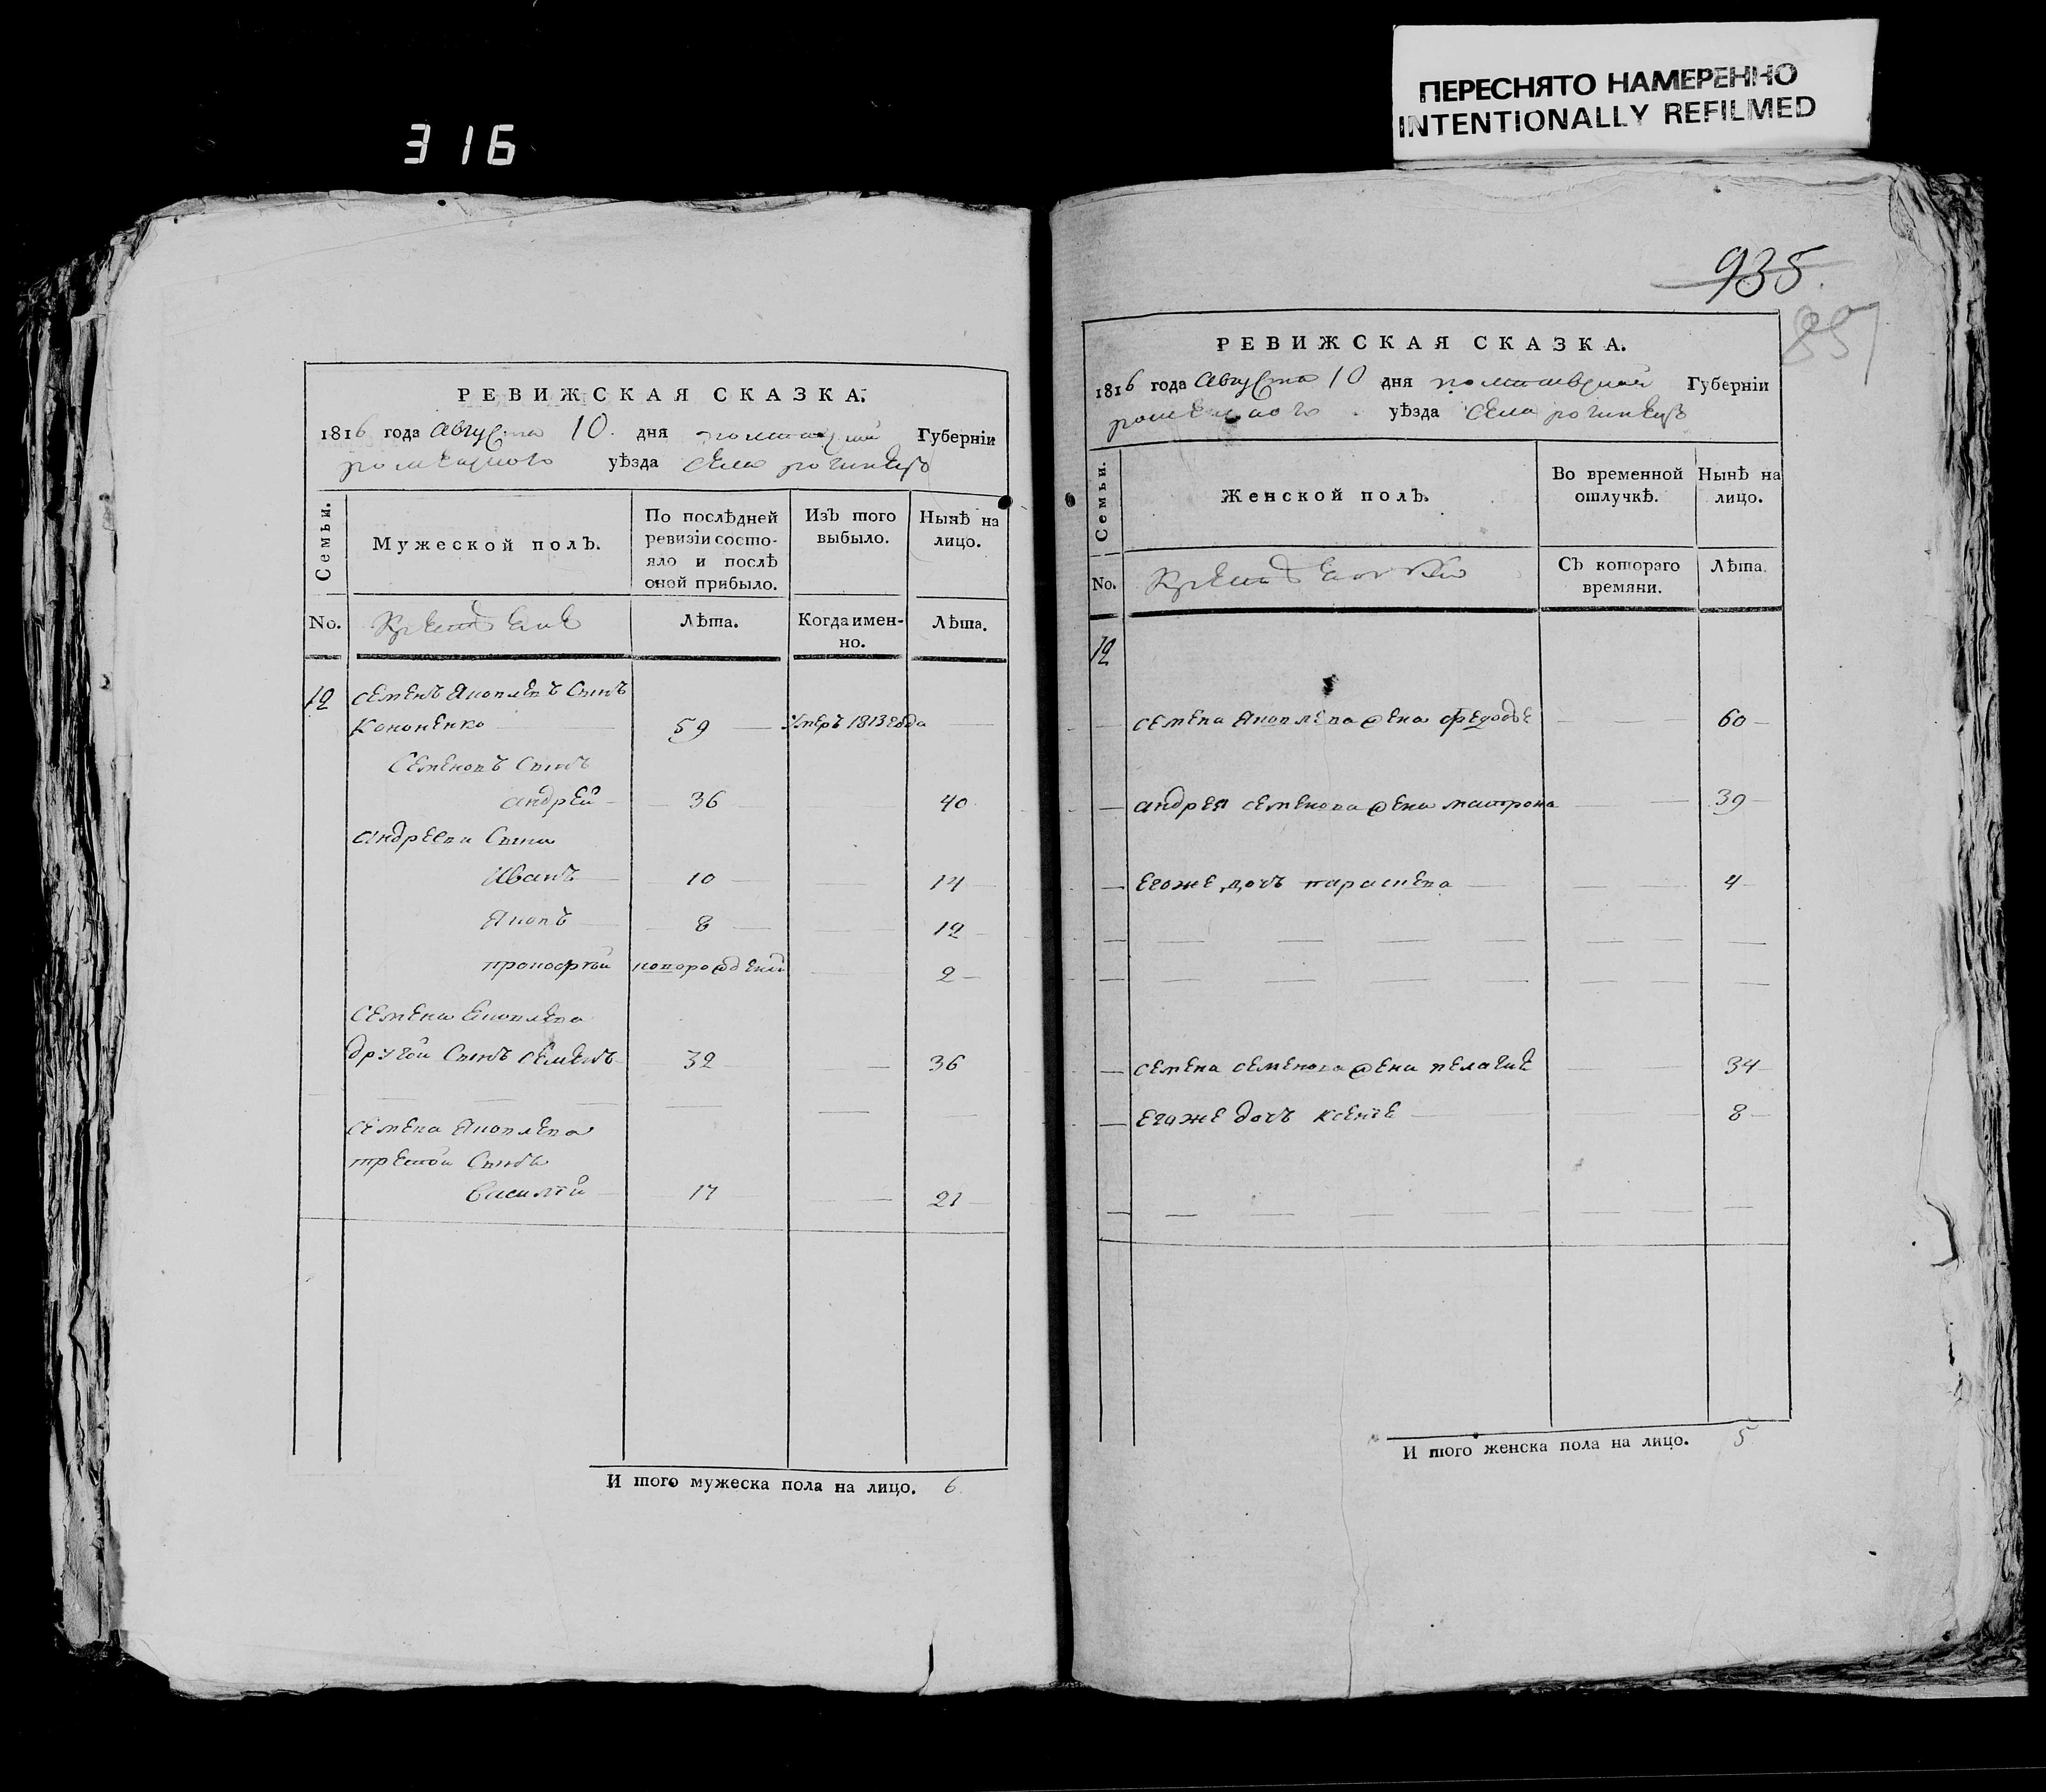 316
ПЕРЕСНЯТО НАМЕРЕННО
INTENTIONALLY REFILMED
РЕВИЖСКАЯ СКАЗКА.
1816 года Августа 10 дня полтавской Губерніи
роменского уѣзда села рогинецъ
Семьи.
Мужеской полъ.
По послѣдней ревизіи состояло и послѣ оной прибыло.
Изъ того выбыло.
Нынѣ на лицо.
No.
Крестьяне
Лѣта.
Когда именно.
Лѣта.
12 семенъ Яковлевъ Сынъ
Кононенко 59 Умеръ 1813 года
Семеновъ Сынъ
андрей 36 40
андреевы Сыны
Иванъ 10 14
Яковъ 8 12
прокофій новорожденій 2
Семена Яковлева
другой Сынъ семенъ 32 36
семена Яковлева
третій Сынъ
Василій 17 21
И того мужеска пола на лицо. 6
935.
857
РЕВИЖСКАЯ СКАЗКА.
1816 года Августа 10 дня полтавской Губерніи
роменского уѣзда села рогинецъ
Семьи.
Женской полъ.
Во временной отлучкѣ.
Нынѣ на лицо.
No.
Крестьянки
Съ котораго времяни.
Лѣта.
12
семена Яковлева жена Федосѣе 60
андрея семенова жена матрона 39
Егоже дочъ параскева 4
семена семенова жена пелагие 34
Егоже дочъ ксение 8
И того женска пола на лицо. 5